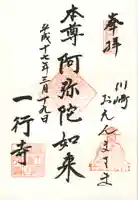 奉拝
川崎
おえんまさま
本尊 阿弥陀如来
平成十七年三月十九日
一行寺